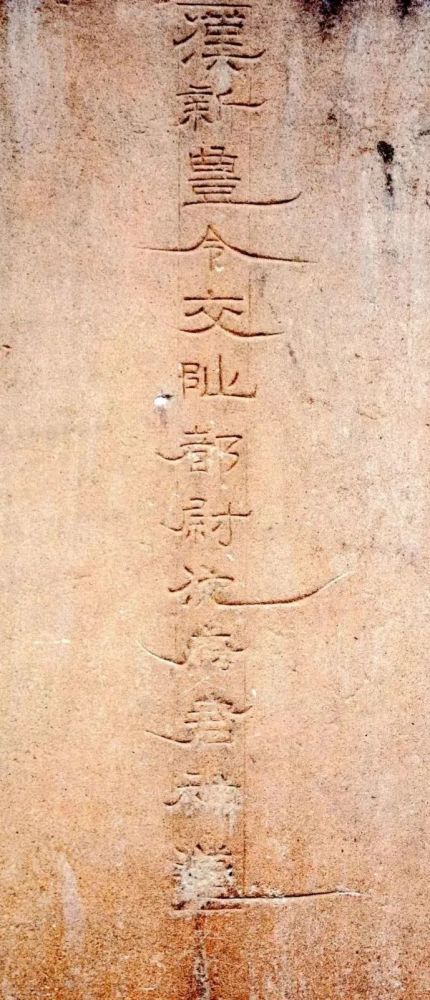 漢新豊令交阯都尉沈府君神道